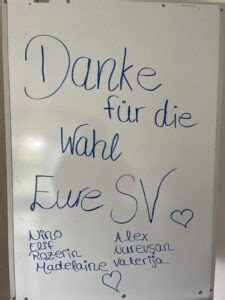 Danke
für die
Wahl
Eure SV
Nino Alex
Elif Nurevşan
Rozerin Valerija
Madelaine